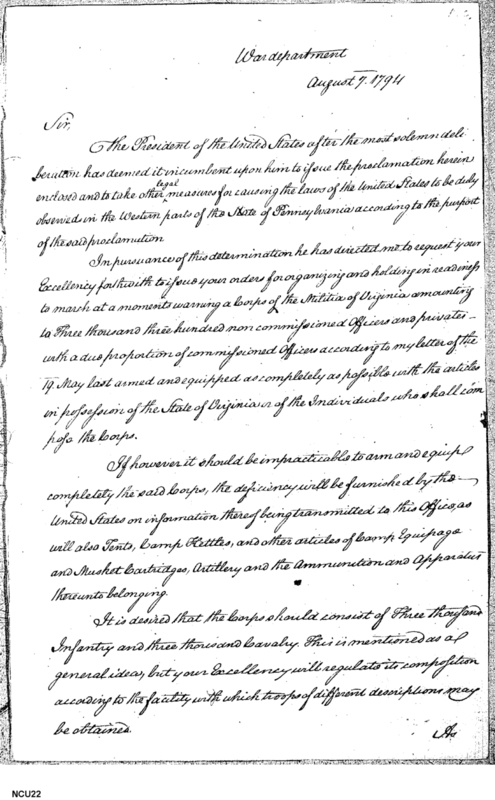 War department
August 7. 1794
Sir,
The President of the United States after the most solemn deli
beration has deemed it incumbent upon him to issue the proclamation herein
legal
enclosed and to take other measures for causing the laws of the United States to be duly
observed in the Western parts of the State of Pennsylvania according to the purport
of the said proclamation
In pursuance of this determination he has directed me to request your
Excellency forthwith to issue your orders for organizing and holding in readiness
to march at a moments warning a Corps of the Militia of Virginia amounting
to Three thousand three hundred non commissioned Officers and privates
with a due proportion of commissioned Officers according to my letter of the
19. May last armed and equipped as completely as possible with the articles
in possession of the State of Virginia or of the Individuals who shall com
pose the Corps.
If however it should be impracticable to arm and equip
completely the said Corps, the deficiency will be furnished by the
United States on information thereof being transmitted to this Office, as
will also Tents, Camp Kettles, and other articles of Camp Equipage
and Musket Cartridges, Artillery and the Ammunition and Apparatus
thereunto belonging
It is desired that the Corps should consist of Three thousand
Infantry and three thousand Cavalry. This is mentioned as a
general idea, but your Excellency will regulate its composition
according to the facility with which troops of different descriptions may
be obtained.
As
NCU22